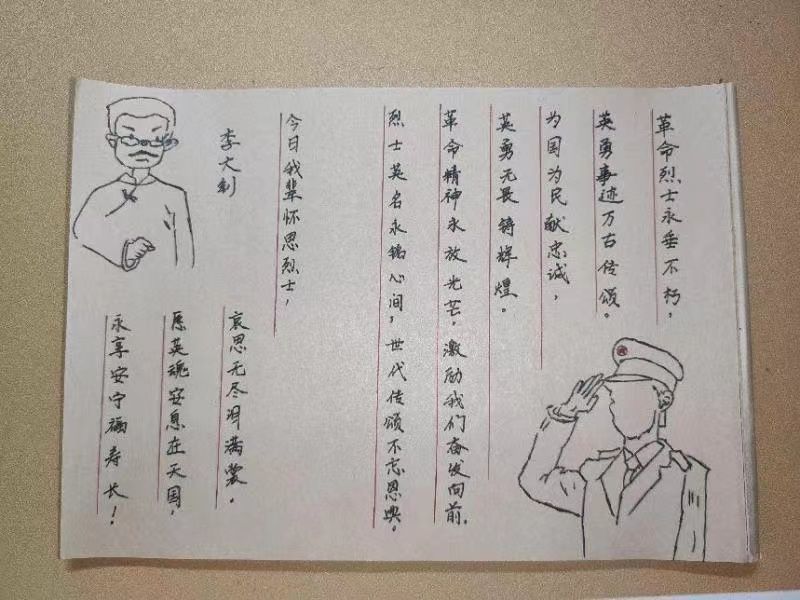 革命烈士永垂不朽，
英勇事迹万古传颂。
为国为民献忠诚，
英勇无畏铸辉煌。
革命精神永放光芒，激励我们奋发向前。
烈士英名永铭心间，世代传颂不忘恩典。
今日我辈怀思烈士，
哀思无尽泪满裳。
愿英魂安息在天国，
永享安宁福寿长！
李大钊